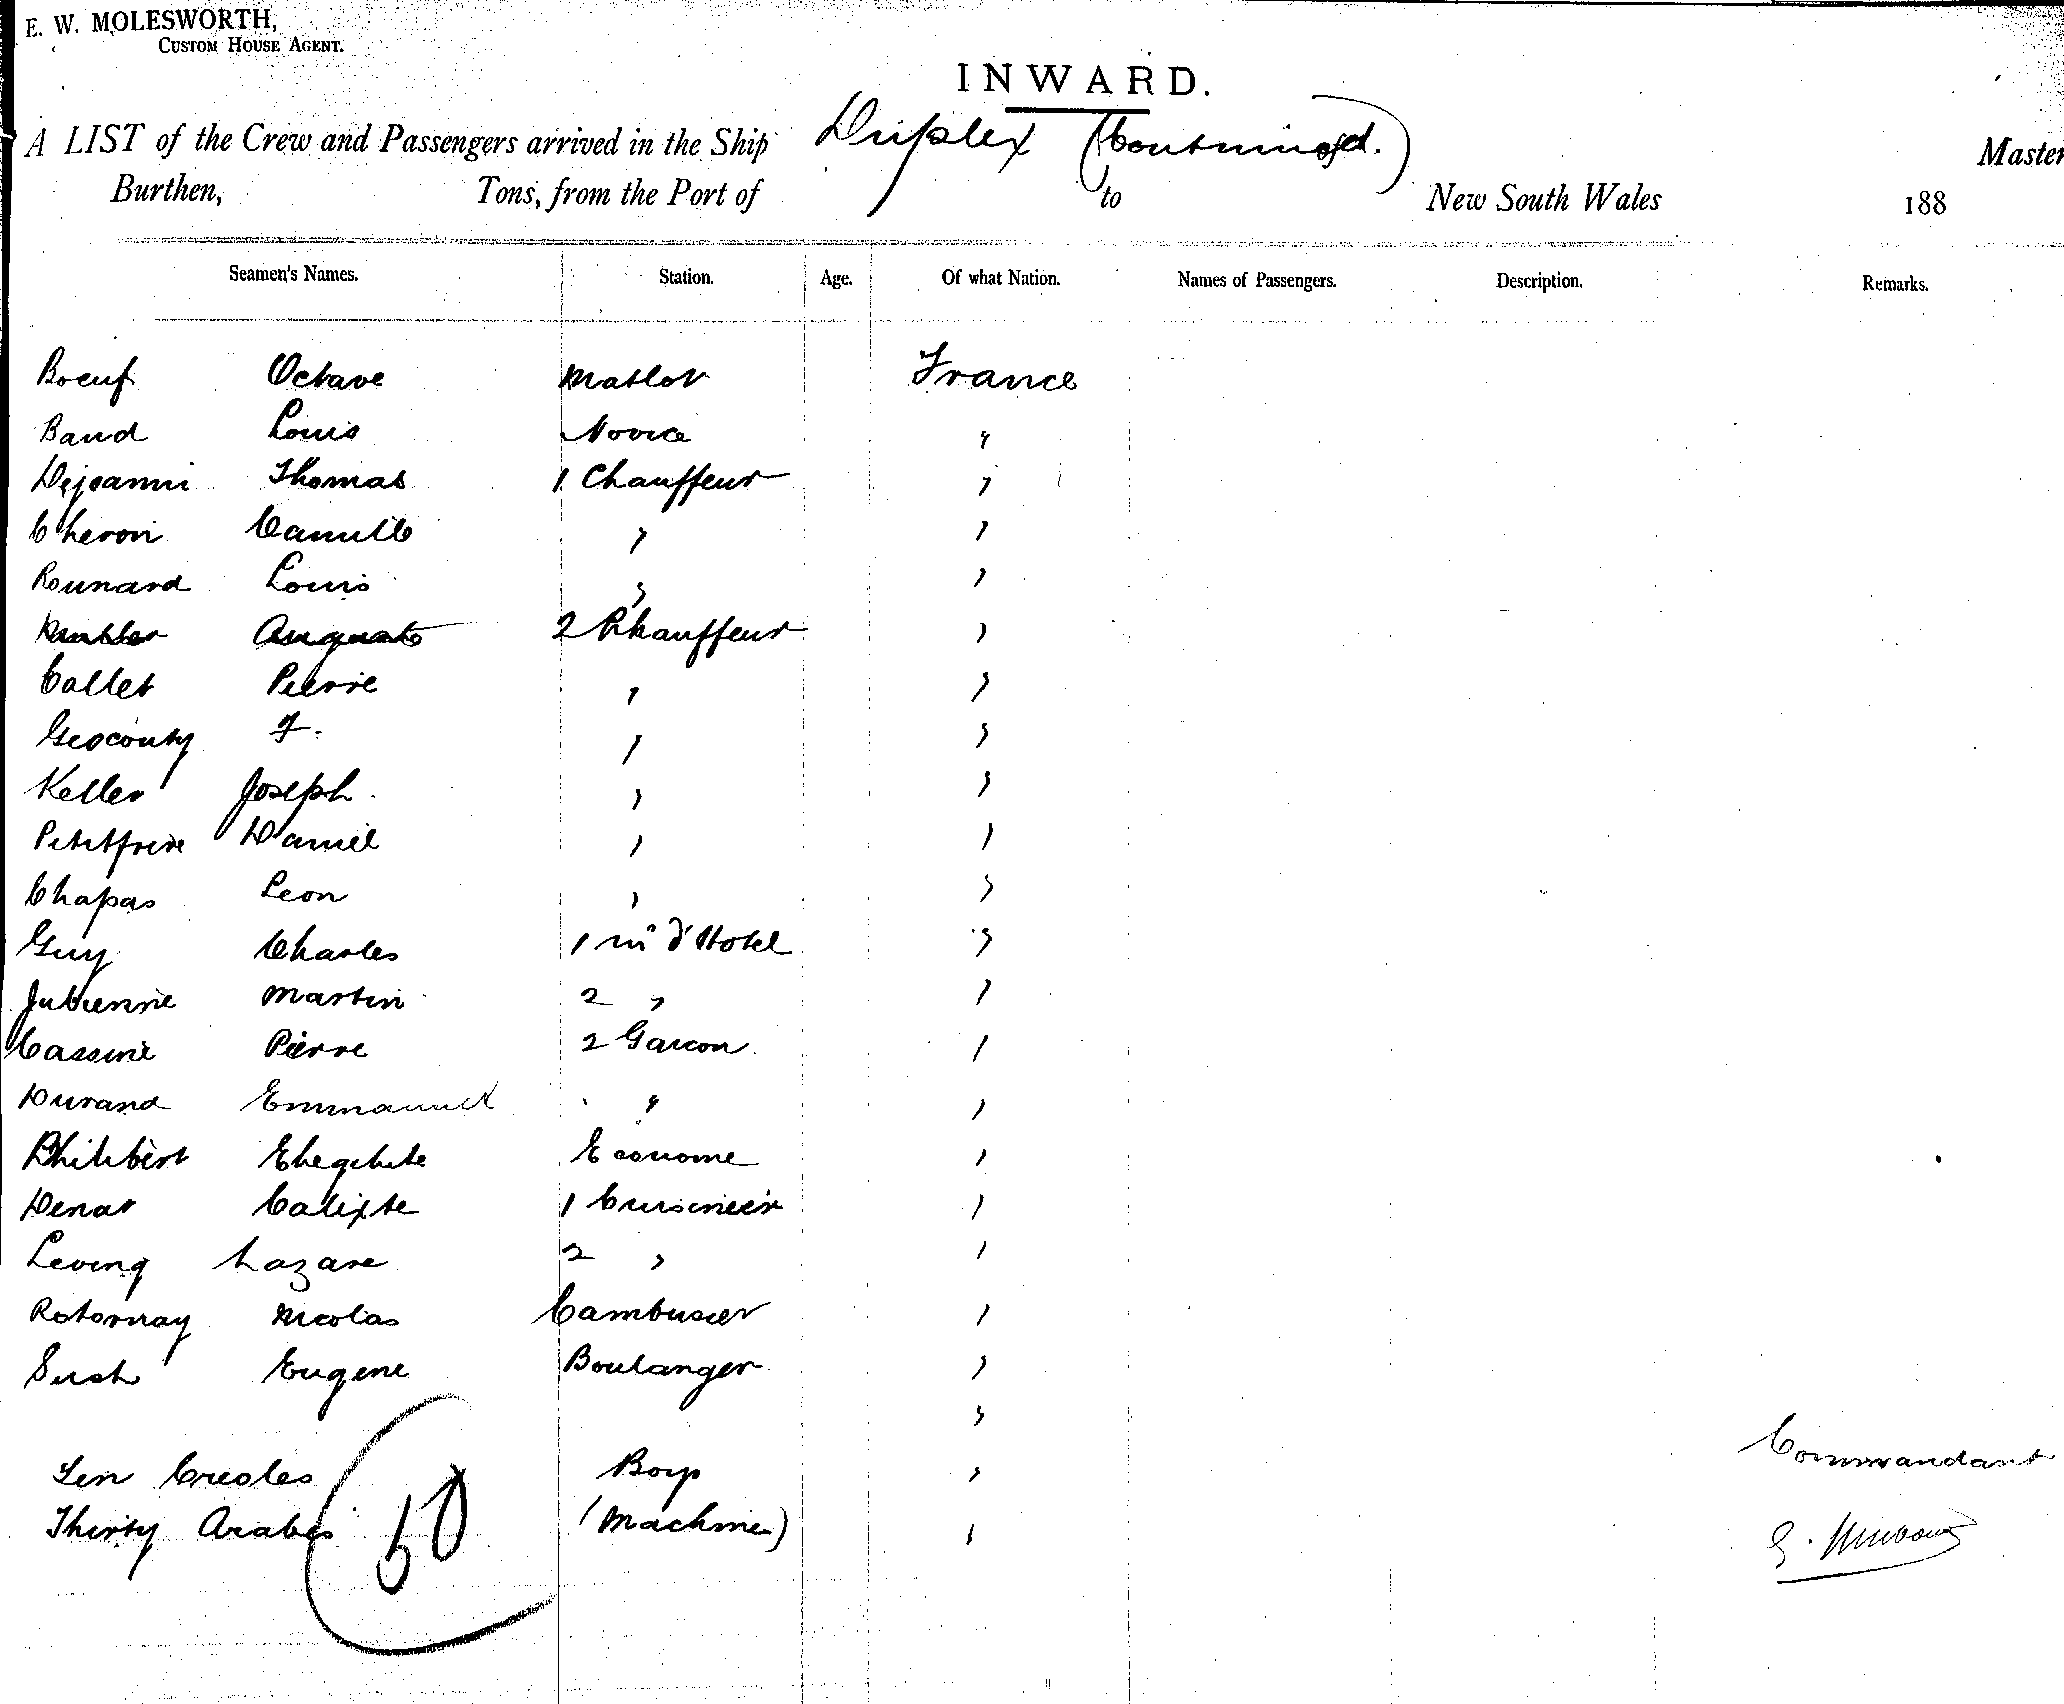 E. W. MOLESWORTH,
CUSTOM HOUSE AGENT.
INWARD.
A LIST of the Crew and Passengers arrived in the Ship Duplex (Continued.) Master
Burthen, Tons, from the Port of to New South Wales 188
Seamen's Names. Station. Age. Of what Nation. Names of Passengers. Description. Remarks.
Boeuf Octave Matlot France
Baud Louis Novice "
Dejoanni Thomas 1 Chauffeur "
Cheron Camille " "
Rounard Louis " "
Auguste 2 Chauffeur "
Collet Pierre " "
Geoconty F. " "
Keller Joseph " "
Petitfrere Daniel " "
Chapas Leon " "
Guy Charles 1 m d'Hotel "
Julienne Martin 2 " "
Cassine Pierre 2 Garcon "
Durand Emmanuel " "
Philibert Econome "
Denat Calixte 1 Cuisinier "
Leving Lazare 2 " "
Rotornay Nicolas Cambusier "
Such Eugene Boulanger "
"
Ten Creoles Boys " Commandant
Thirty Arabes (Machine) "
60